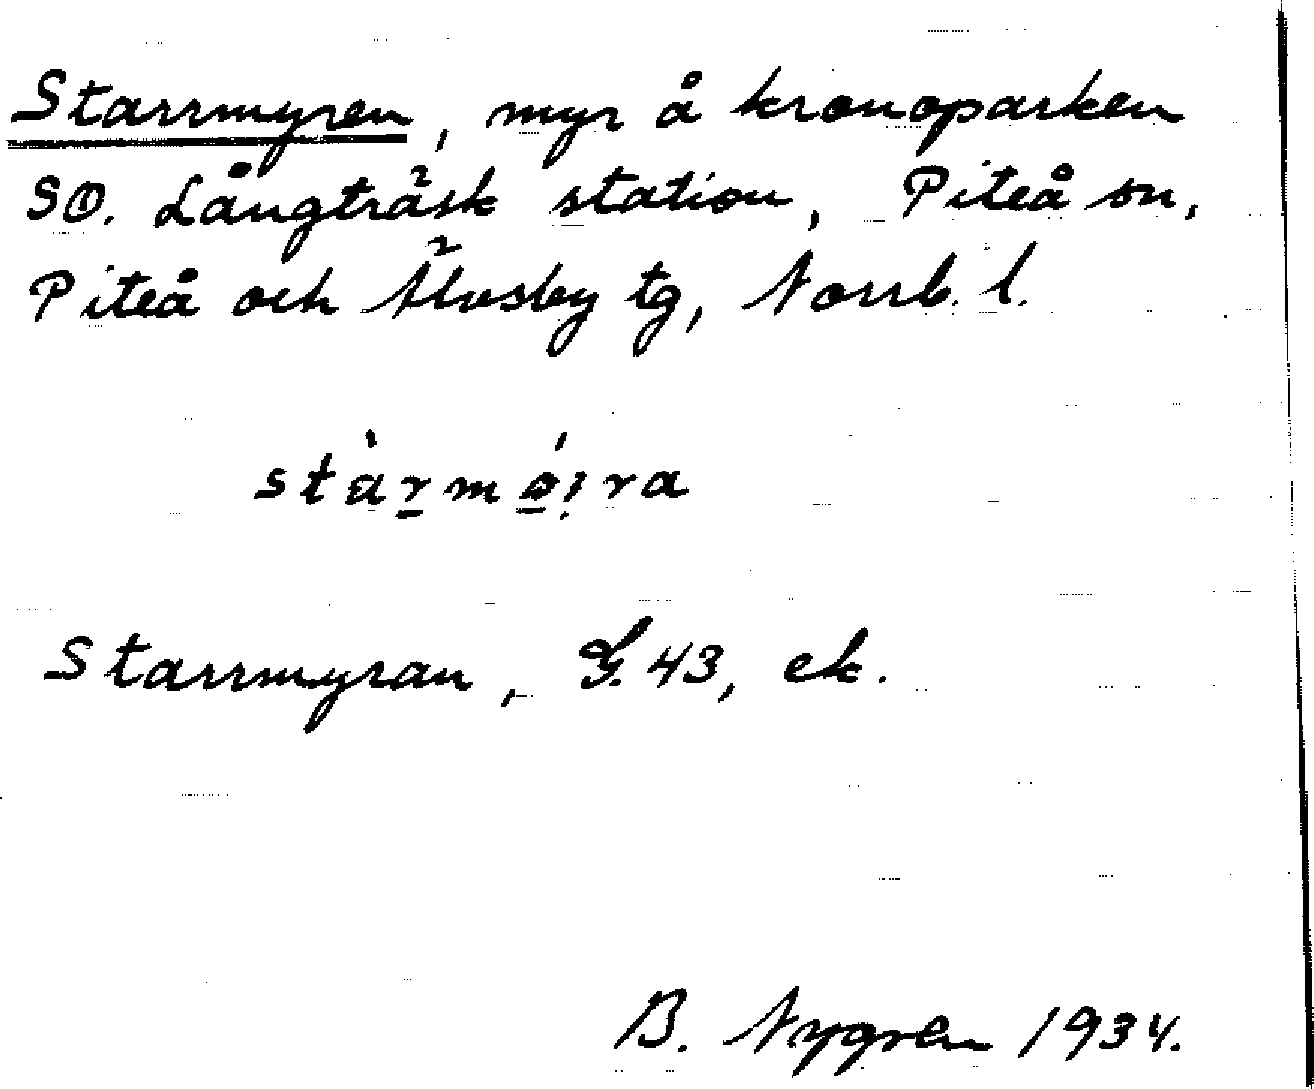 Starrmyren, myr å kronoparken
SO. Långträsk station, Piteå sn,
Piteå och Älvsby tg, Norrb. l.
Starrmyran, G. 43, ek.
B. Nygren 1934.